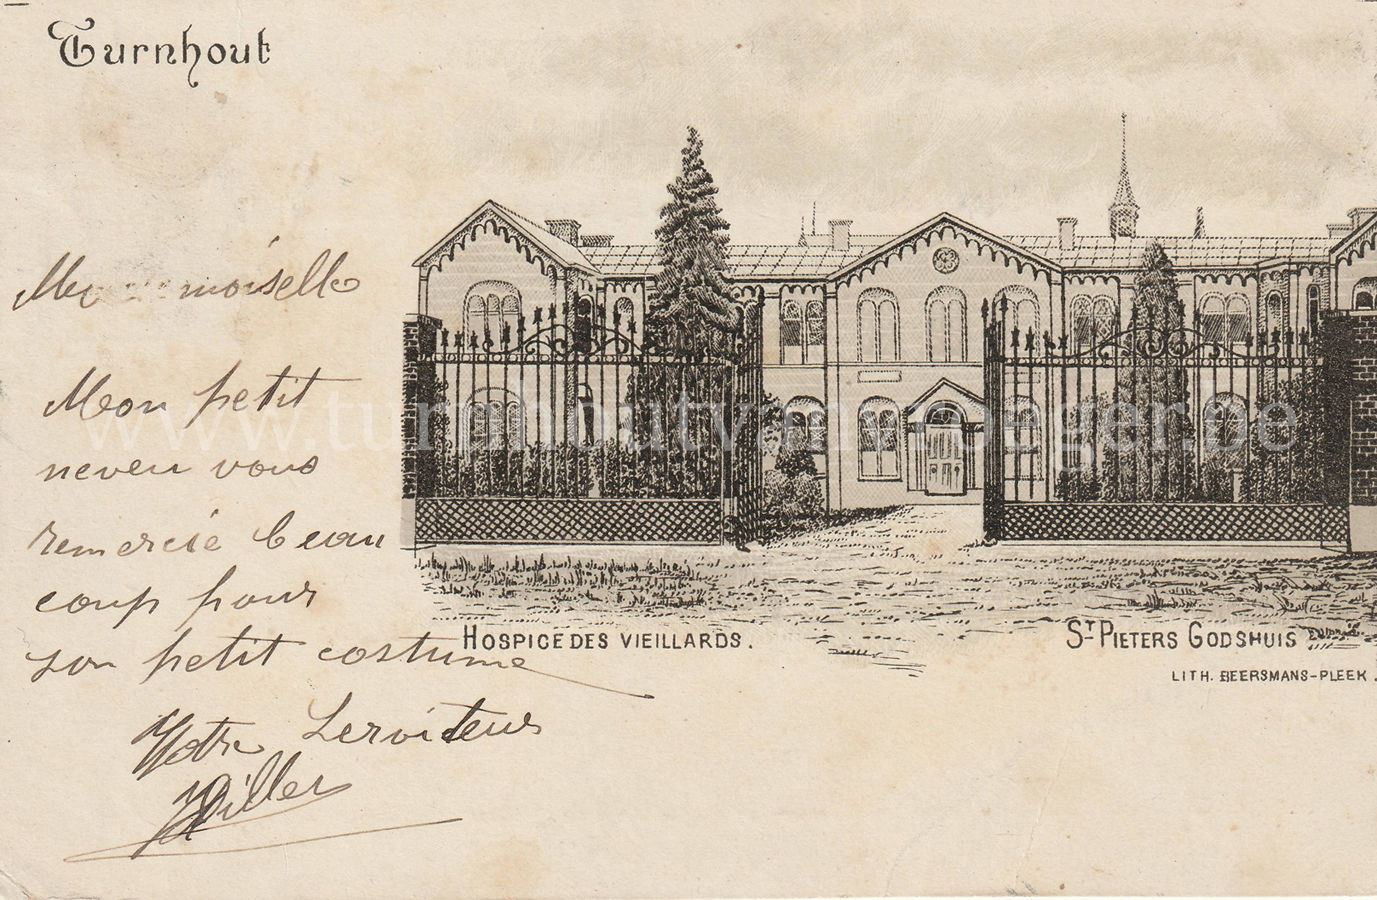 Turnhout
Mademoiselle
Mon petit
neveu vous
remercie beau
coup pour
son petit costume
Votre Serviteur
www.turnhoutvanvroeger.be
HOSPICE DES VIEILLARDS.
ST PIETERS GODSHUIS
LITH. BEERSMANS-PLEEK.